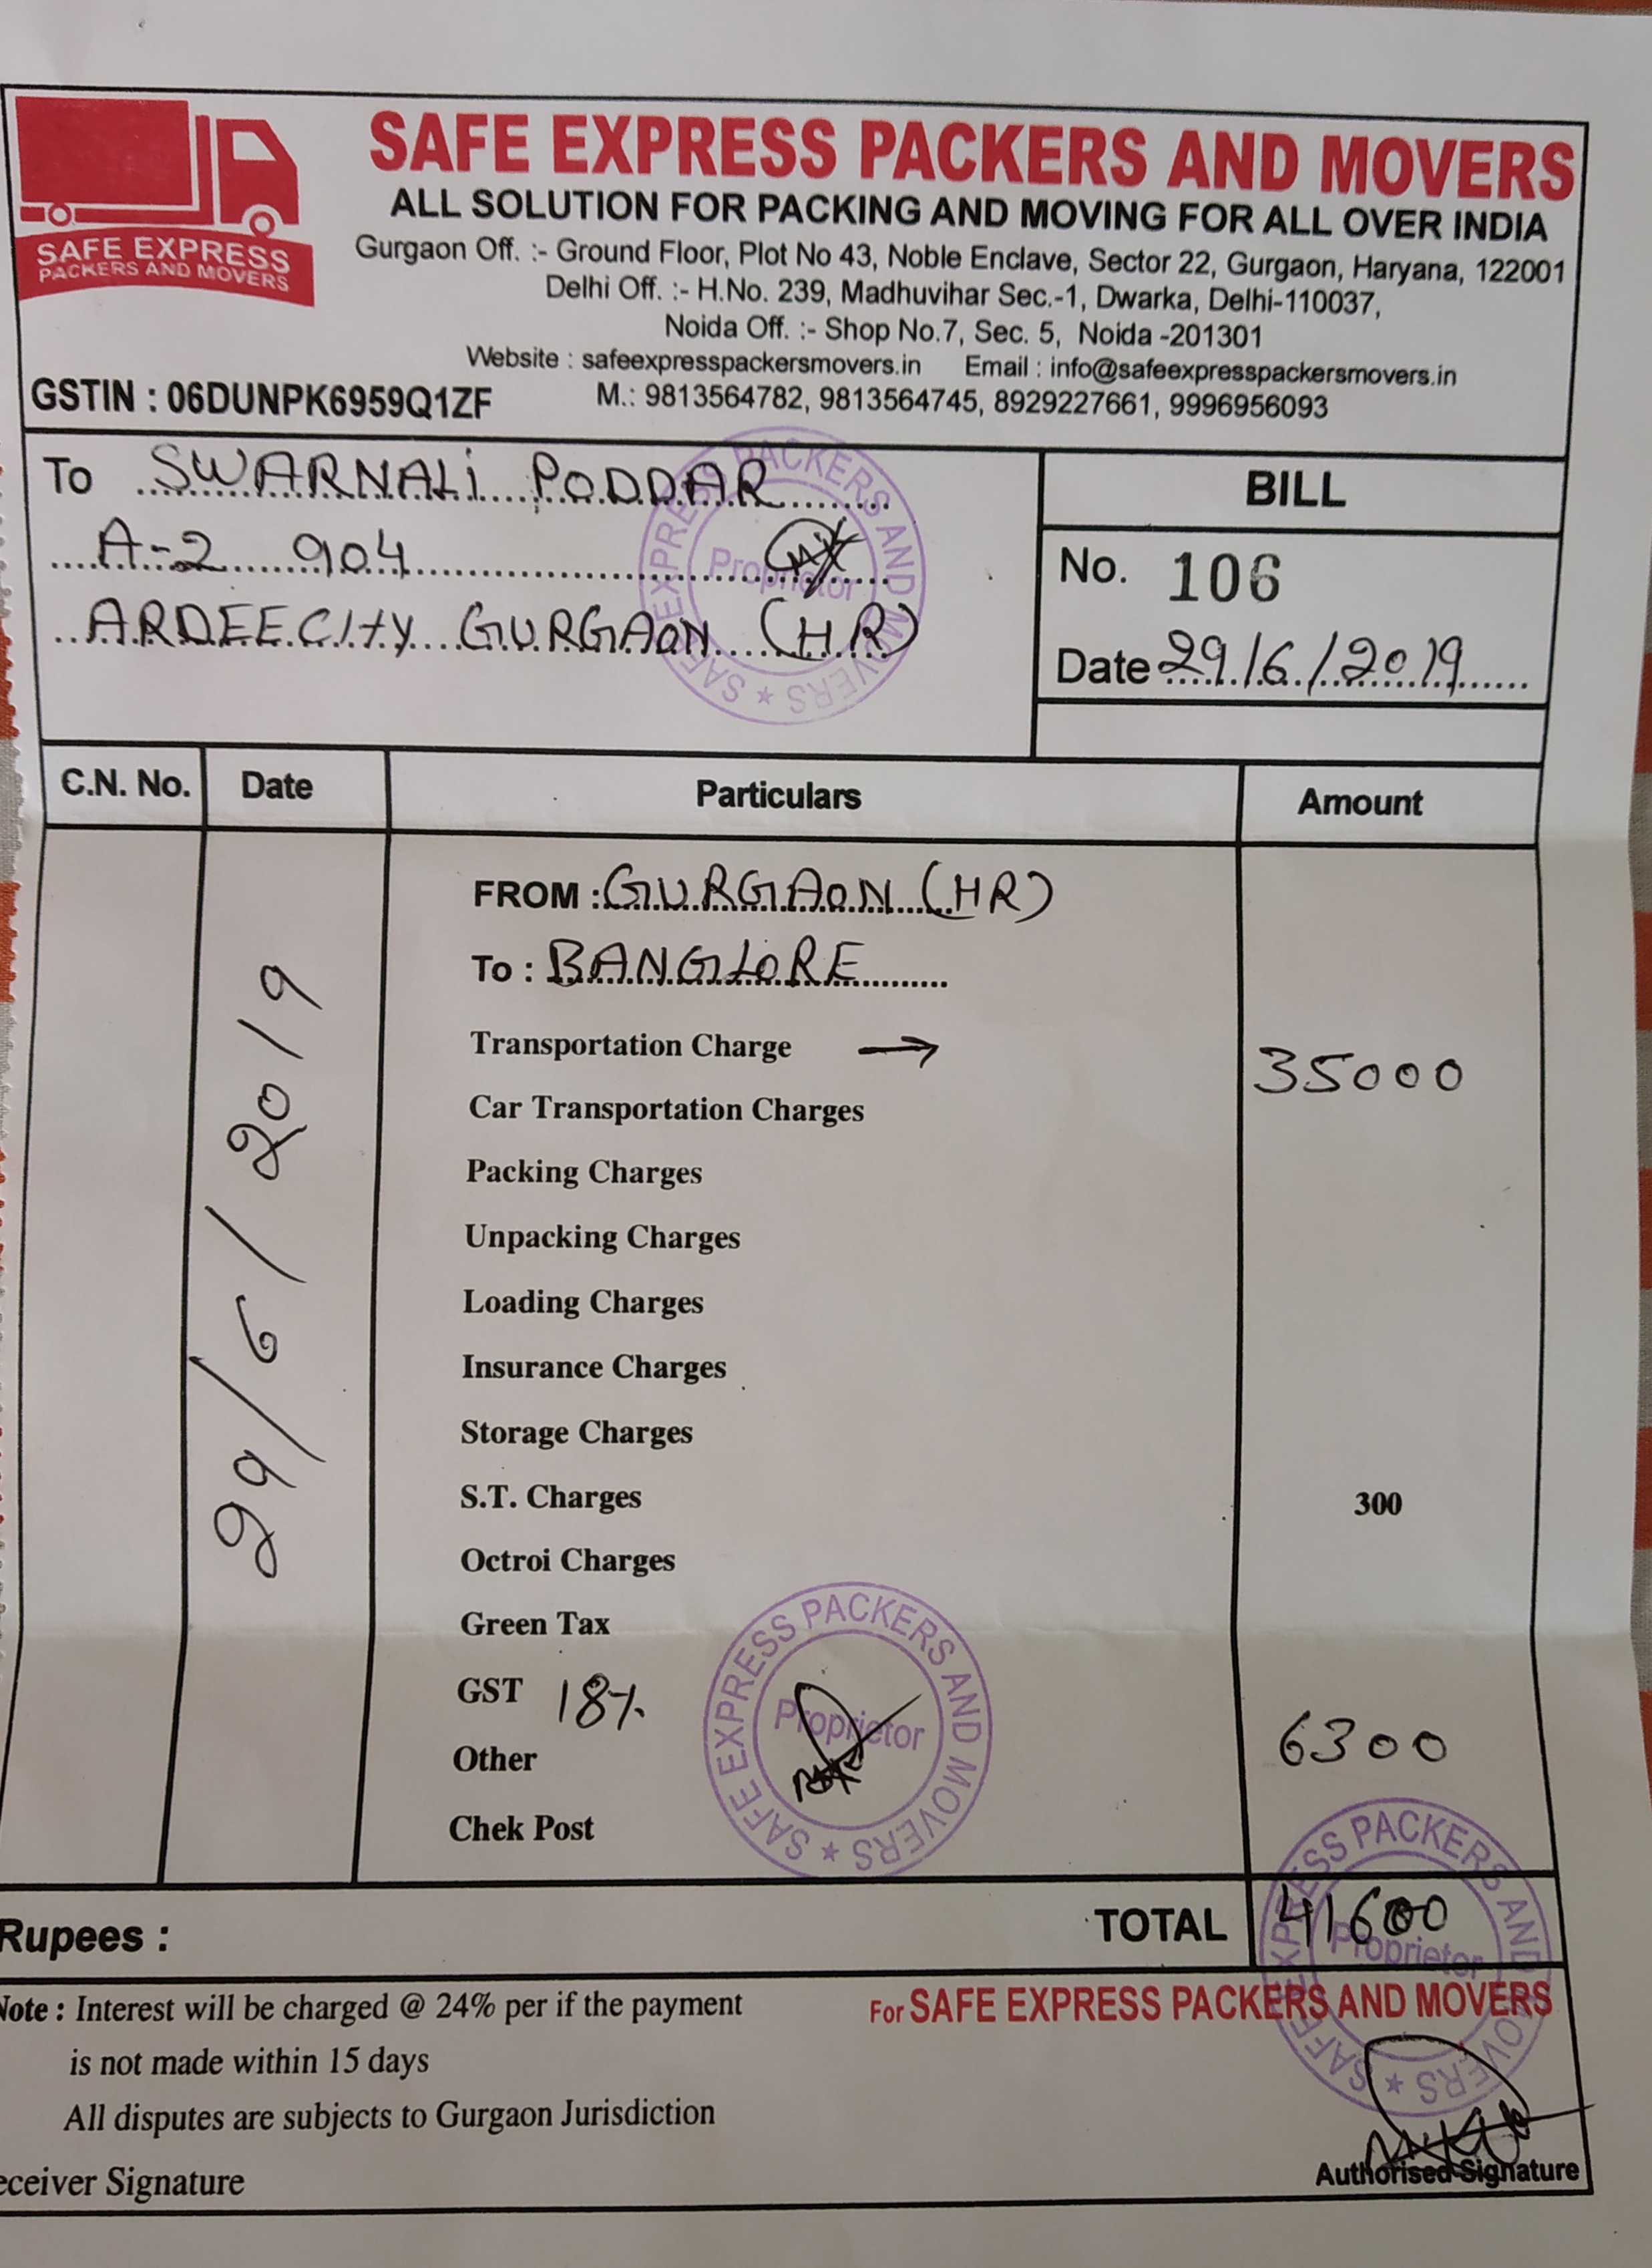 SAFE EXPRESS PACKERS AND MOVERS
ALL SOLUTION FOR PACKING AND MOVING FOR ALL OVER INDIA
SAFE EXPRESS
PACKERS AND MOVERS
Gurgaon Off. :- Ground Floor, Plot No 43, Noble Enclave, Sector 22, Gurgaon, Haryana, 122001
Delhi Off. :- H.No. 239, Madhuvihar Sec.-1, Dwarka, Delhi-110037,
Noida Off. :- Shop No.7, Sec. 5, Noida -201301
Website : safeexpresspackersmovers.in Email : info@safeexpresspackersmovers.in
GSTIN : 06DUNPK6959Q1ZF M.: 9813564782, 9813564745, 8929227661, 9996956093
To SWARNALI PODDAR
A-2 904
ARDEECITY GURGAON (HR)
SAFE EXPRESS PACKERS AND MOVERS
Proprietor
BILL
No. 106
Date 29/6/2019
C.N. No. Date Particulars Amount
29/6/2019
FROM : GURGAON (HR)
To : BANGLORE
Transportation Charge → 35000
Car Transportation Charges
Packing Charges
Unpacking Charges
Loading Charges
Insurance Charges
Storage Charges
S.T. Charges 300
Octroi Charges
Green Tax
GST 18% 6300
Other
Chek Post
SAFE EXPRESS PACKERS AND MOVERS
Proprietor
Rupees : TOTAL 41600
SAFE EXPRESS PACKERS AND MOVERS
Proprietor
Note : Interest will be charged @ 24% per if the payment
is not made within 15 days
All disputes are subjects to Gurgaon Jurisdiction
For SAFE EXPRESS PACKERS AND MOVERS
eceiver Signature Authorised Signature